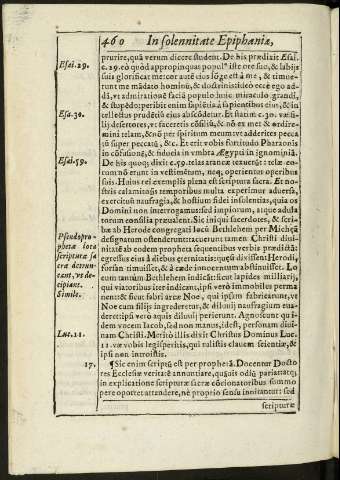 460 In solennitate Epiphaniæ,
prurire, quâ verum dicere student. De his prædixit Esai.
Esai.29.
c. 29. eò quòd appropinquat popul⁹ iste ore suo, & labijs
suis glorificat me: cor autē eius lōgè est à me, & timue-
runt me mādato hominū, & doctrinis: ideò ecce ego ad-
dā, vt admirationē faciā populo huic miraculo grandi,
& stupēdo: peribit enim sapiētia à sapientibus eius, & in
Esa.30.
tellectus prudētū eius abscōdetur. Et statim c. 30. væ fi-
lij desertores, vt faceretis cōsiliū, & nō ex me: & ordire-
mini telam, & nō per spiritum meum: vt adderetis pecca
tū super peccatū, &c. Et erit vobis fortitudo Pharaonis
in cōfusionē, & fiducia in vmbra Ægypti in ignominiā.
Esai.59.
De his quoq; dixit c. 59. telas araneæ texuerūt: telæ eo-
rum nō erunt in vestimētum, neq; operientur operibus
suis. Huius rei exemplis plena est scriptura sacra. Et no-
stris calamitosis temporibus multa experimur aduersa,
exercitus naufragia, & hostium fidei insolentias, quia os
Domini non interrogamus: sed impiorum, atque adusa
torum consilia præualent. Sic in qui sacerdotes, & scri-
bæ ab Herode congregati locū Bethlehem per Michęā
Pseudopro-
designatum ostenderunt: tacuerunt tamen Christi diui-
phetæ loca
nitatē ab eodem propheta sequentibus verbis prædictā:
scripturæ sa
egressus eius à diebus æternitatis: quęsi dixissent Herodi,
cra detrun-
forsan timuisset, & à cæde innocentum abstinuisset. Lo
cant, vt de-
cum tantùm Bethlehem indicāt: sicut lapides milliarij,
cipiant.
qui viatoribus iter indicant, ipsi verò immobiles perma
Simile.
nent: & sicut fabri arcæ Noë, qui ipsam fabricarunt, vt
Noë cum filijs ingrederetur, & diluuij naufragium eua-
deret: ipsi verò aquis diluuij perierunt. Agnoscunt qui-
dem vocem Iacob, sed non manus, idest, personam diui-
nam Christi. Meritò illis dixit Christus Dominus Luc.
Luc.11.
11. væ vobis legisperitis, qui tulistis clauem scientiæ, &
ipsi non introistis.
17.
¶Sic enim scriptū est per prophetā. Docentur Docto
res Ecclesiæ veritatē annuntiare, quāuis odiū pariat: atq;
in explicatione scripturæ sacræ cōcionatoribus summo
pere oportet attendere, nè proprio sensu innitantur: sed
scripturæ